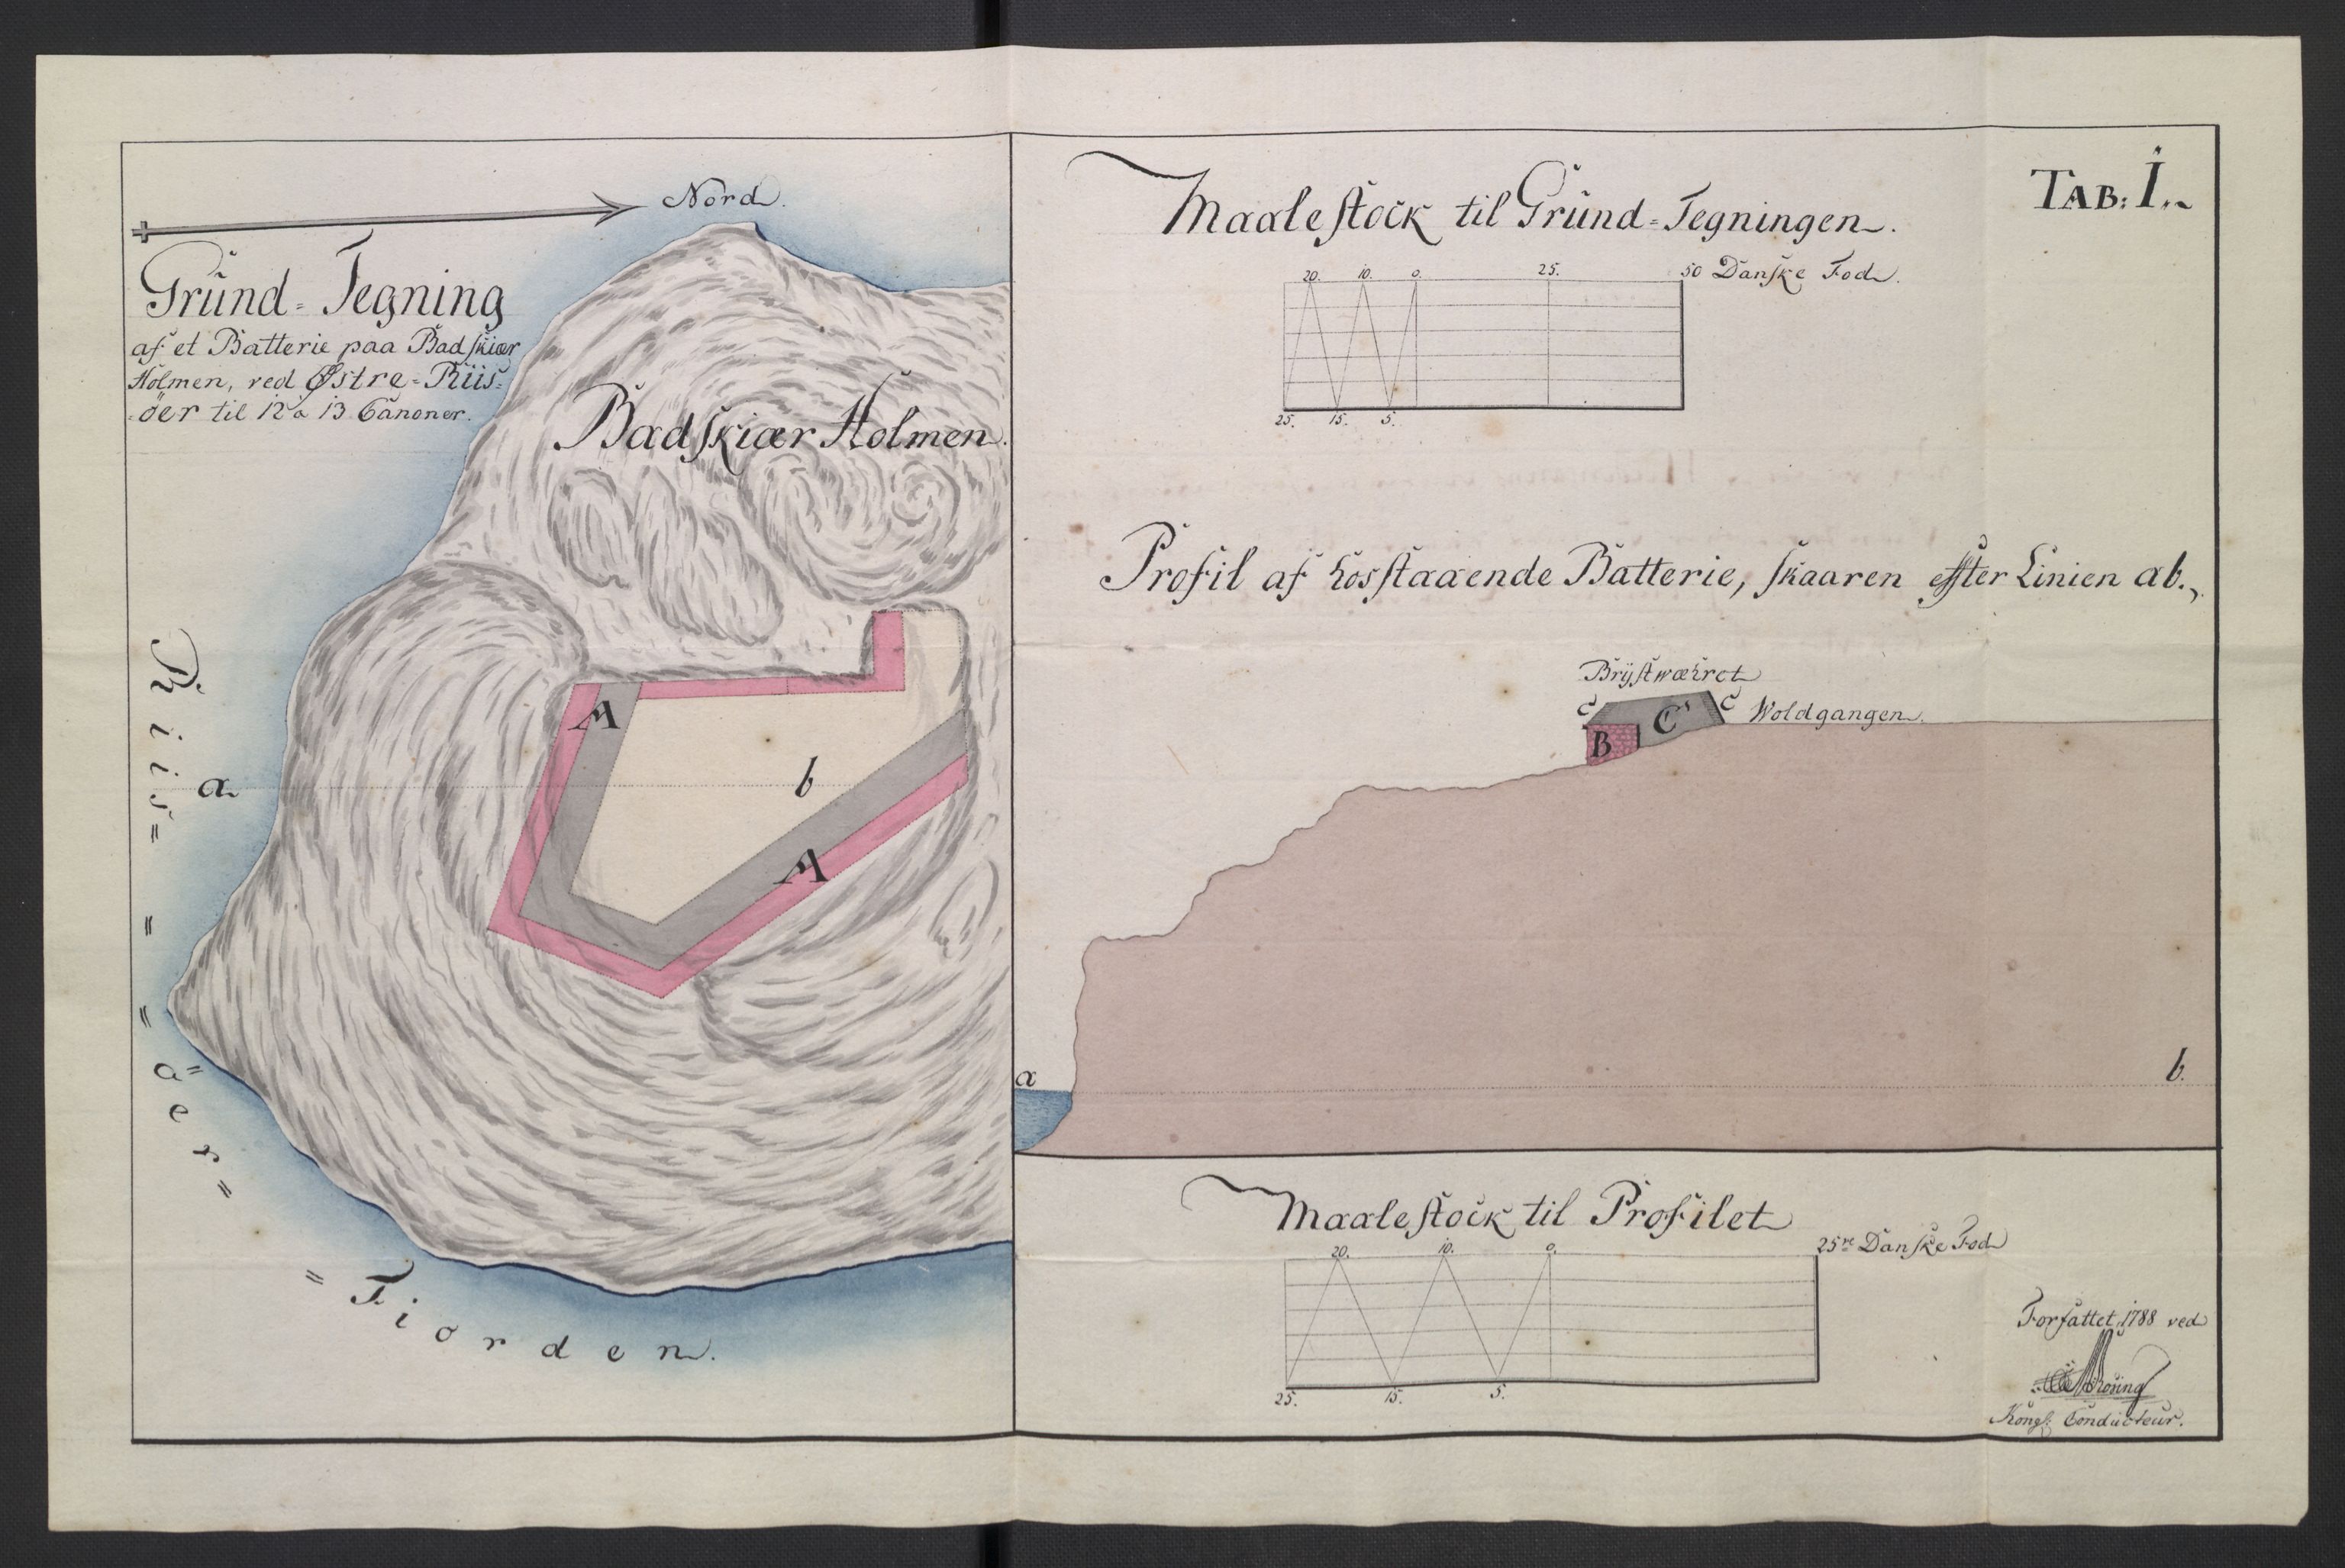 Nord.
Gründ=Tegning
af et Batterie paa Badskiær
Holmen, ved Østre=Riis=
=öer til 12 a 13 Canoner.
Badskiær Holmen.
A
a
b
A
Riis= = = öer= = Fiorden.
TAB: I.
Maalestock til Gründ=Tegningen.
20. 10. 0. 25. 50 Danske Fod.
25. 15. 5.
Profil af hosstaaende Batterie, skaaren effter Linien ab.
Brÿstwæhret
C C C Woldgangen.
B
a
b.
Maalestock til Profilet
20. 10. 0. 25re Danske Fod
25. 15. 5.
Forfattet 1788 ved
Kongl: Conducteur.